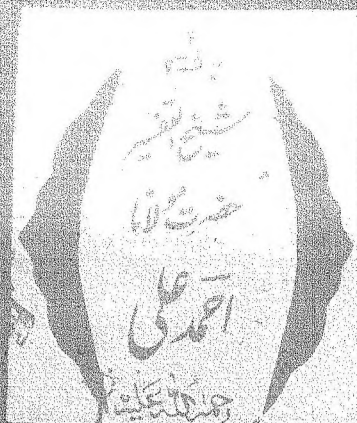 شیخ التفسیر
حضرت مولانا
احمد علی
رحمۃ اللہ علیہ